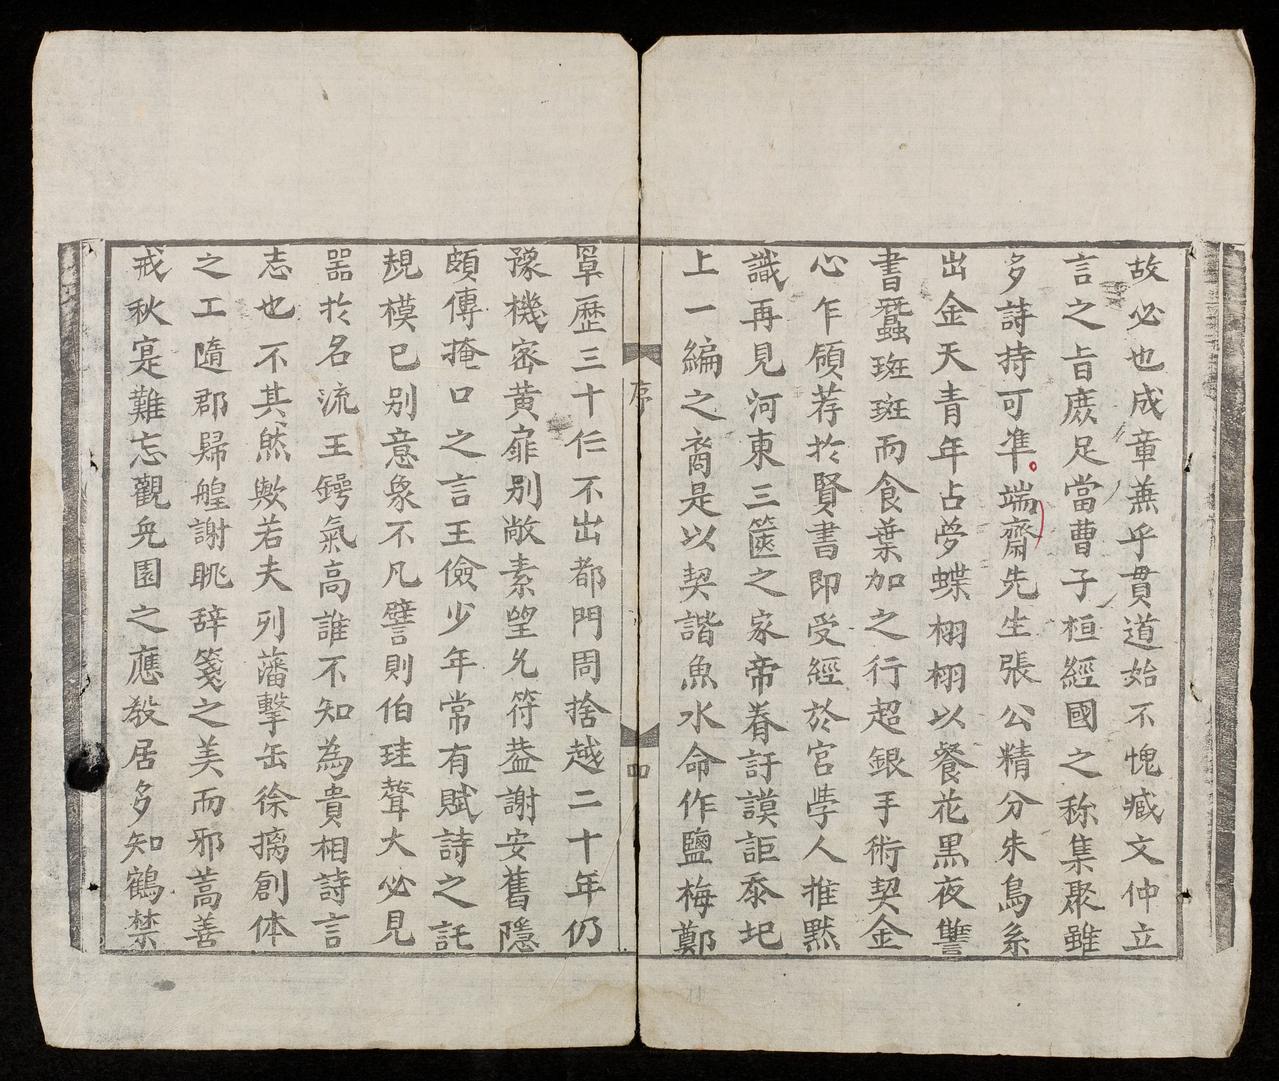 故必也成章無乎貫道始不愧臧文仲立
言之旨庶足當曹子桓經國之称集聚雖
多詩持可準端齋先生張公精分朱鳥系
出金天青年占夢蝶栩栩以餐花黒夜讐
書蠶斑斑而食葉加之行超銀手術契金
心乍頎荐於賢書即受經於宮学人推黙
識再見河東三篋之家帝眷訏謨詎忝圯
上一編之裔是以契諧魚水命作鹽梅鄭
序
四
覃歷三十仨不出都門周捨越二十年仍
豫機密黄扉别敞素望允符葢謝安舊隱
頗傳掩口之言王儉少年常有賦詩之託
規模已别意象不凡譬則伯珪聲大必見
噐於名流王鍔氣高誰不知為貴相詩言
志也不其然歟若夫列藩擊缶徐摛創体
之工隨郡歸艎謝眺辞箋之美而邪蒿善
戒秋寔難忘觀兔園之應教居多知鶴禁